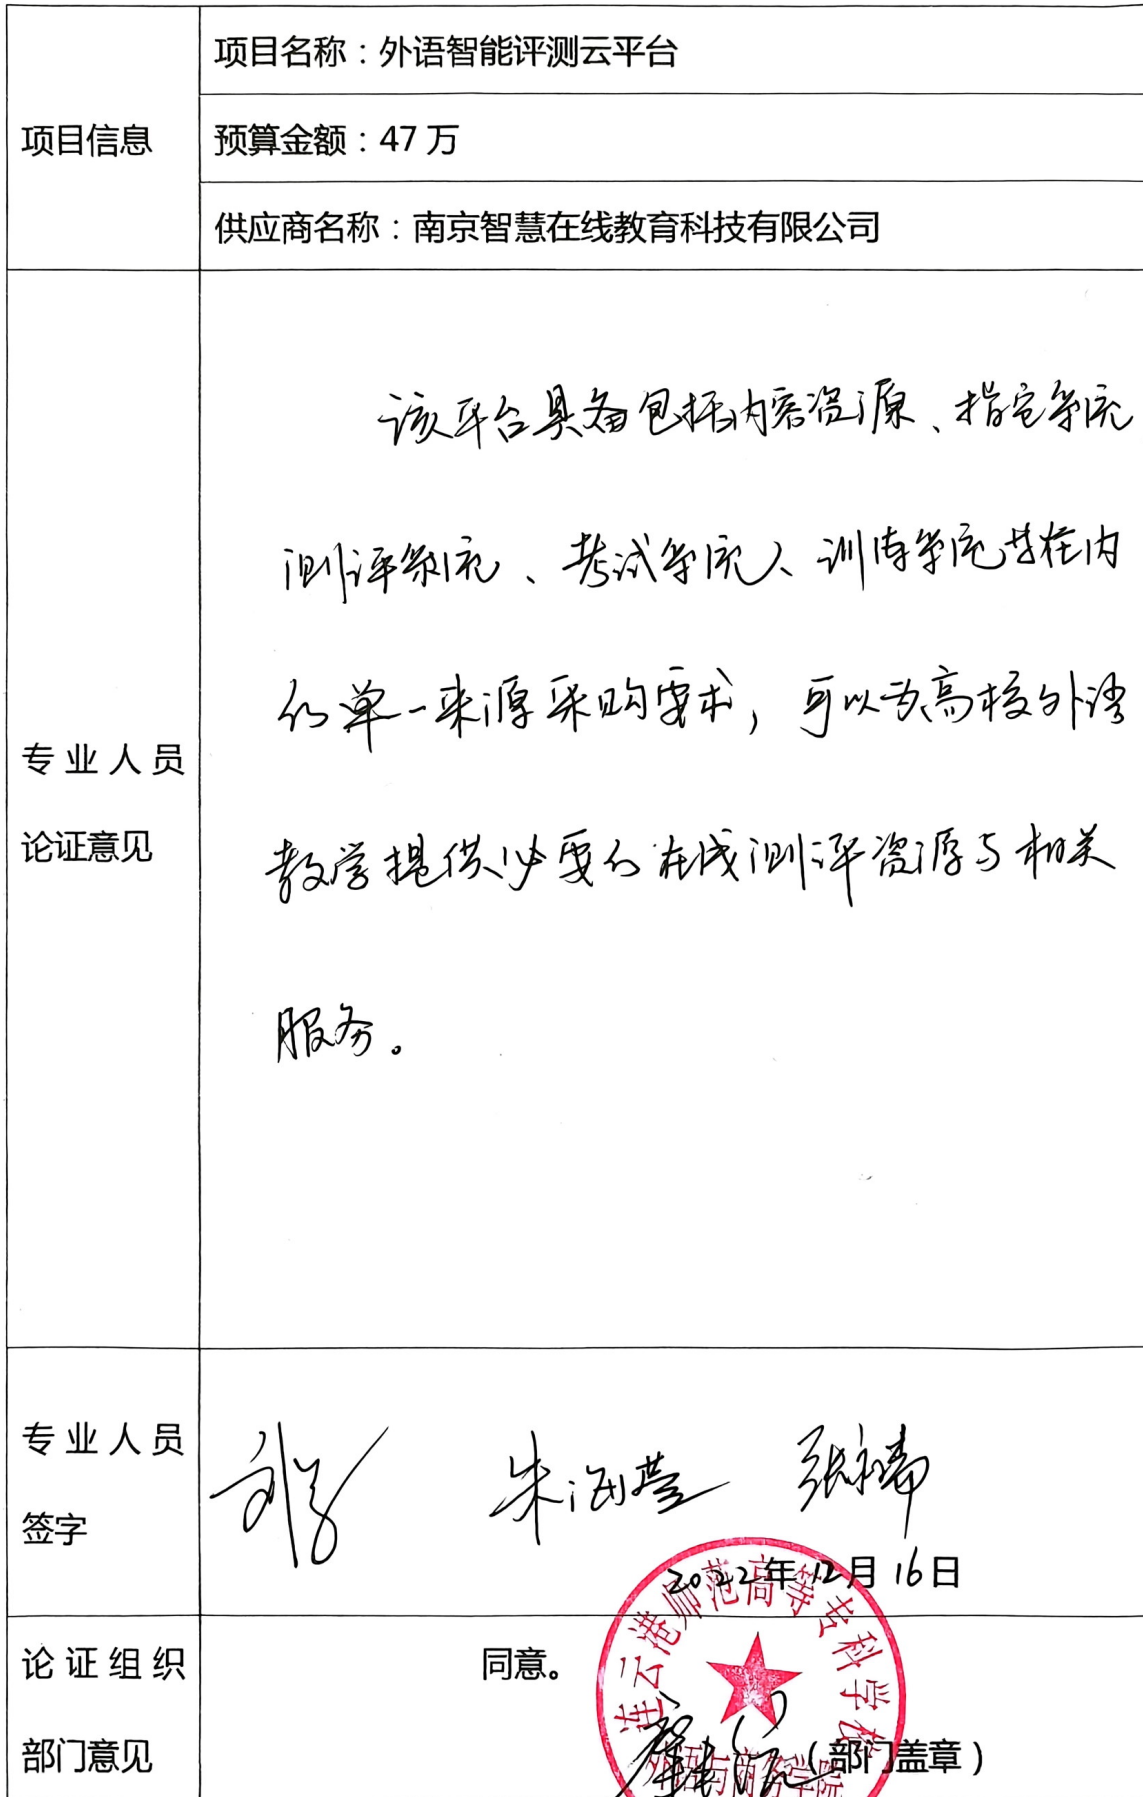 项目信息
项目名称：外语智能评测云平台
预算金额：47万
供应商名称：南京智慧在线教育科技有限公司
专业人员
论证意见
该平台具备包括内容资源、指定系统
测评系统、考试系统、训练系统等在内
的单一来源采购需求，可以为高校外语
教学提供必要的在线测评资源与相关
服务。
专业人员
签字
朱海莹
2022年12月16日
论证组织
部门意见
同意。
连云港师范高等专科学校
外语与商务学院
（部门盖章）